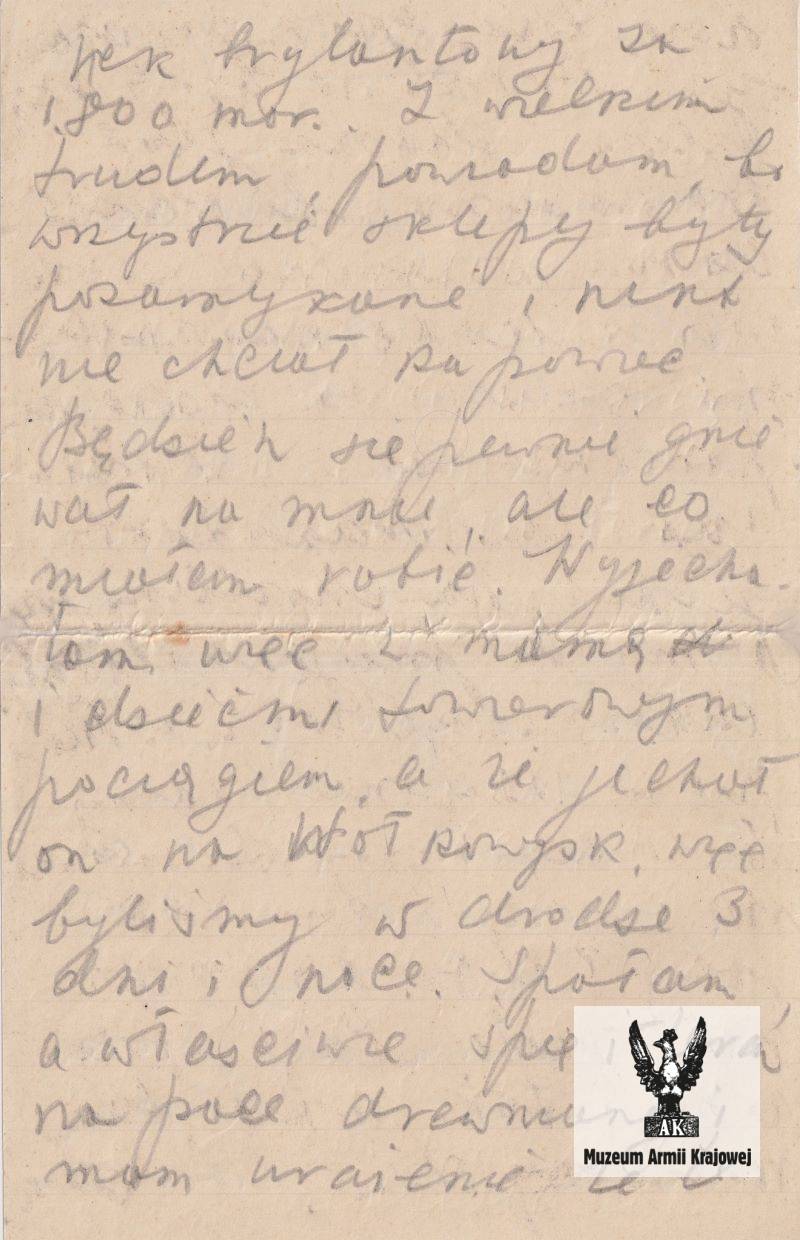 nek brylantowy za
1.800 mar. Z wielkim
trudem, powiadam, bo
wszystkie sklepy były
pozamykane i nikt
nie chciał kupować
Będzie się pewnie gnie
wał na mnie, ale co
miałam robić. Wyjecha-
łam więc z mamą
i dziećmi towarowym
pociągiem, a że jechał
on na Wołkowysk, więc
byliśmy w drodze 3
dni i noce. Spałam
a właściwie śpię i
na pace drewnianej i
mam wrażenie że
AK
Muzeum Armii Krajowej